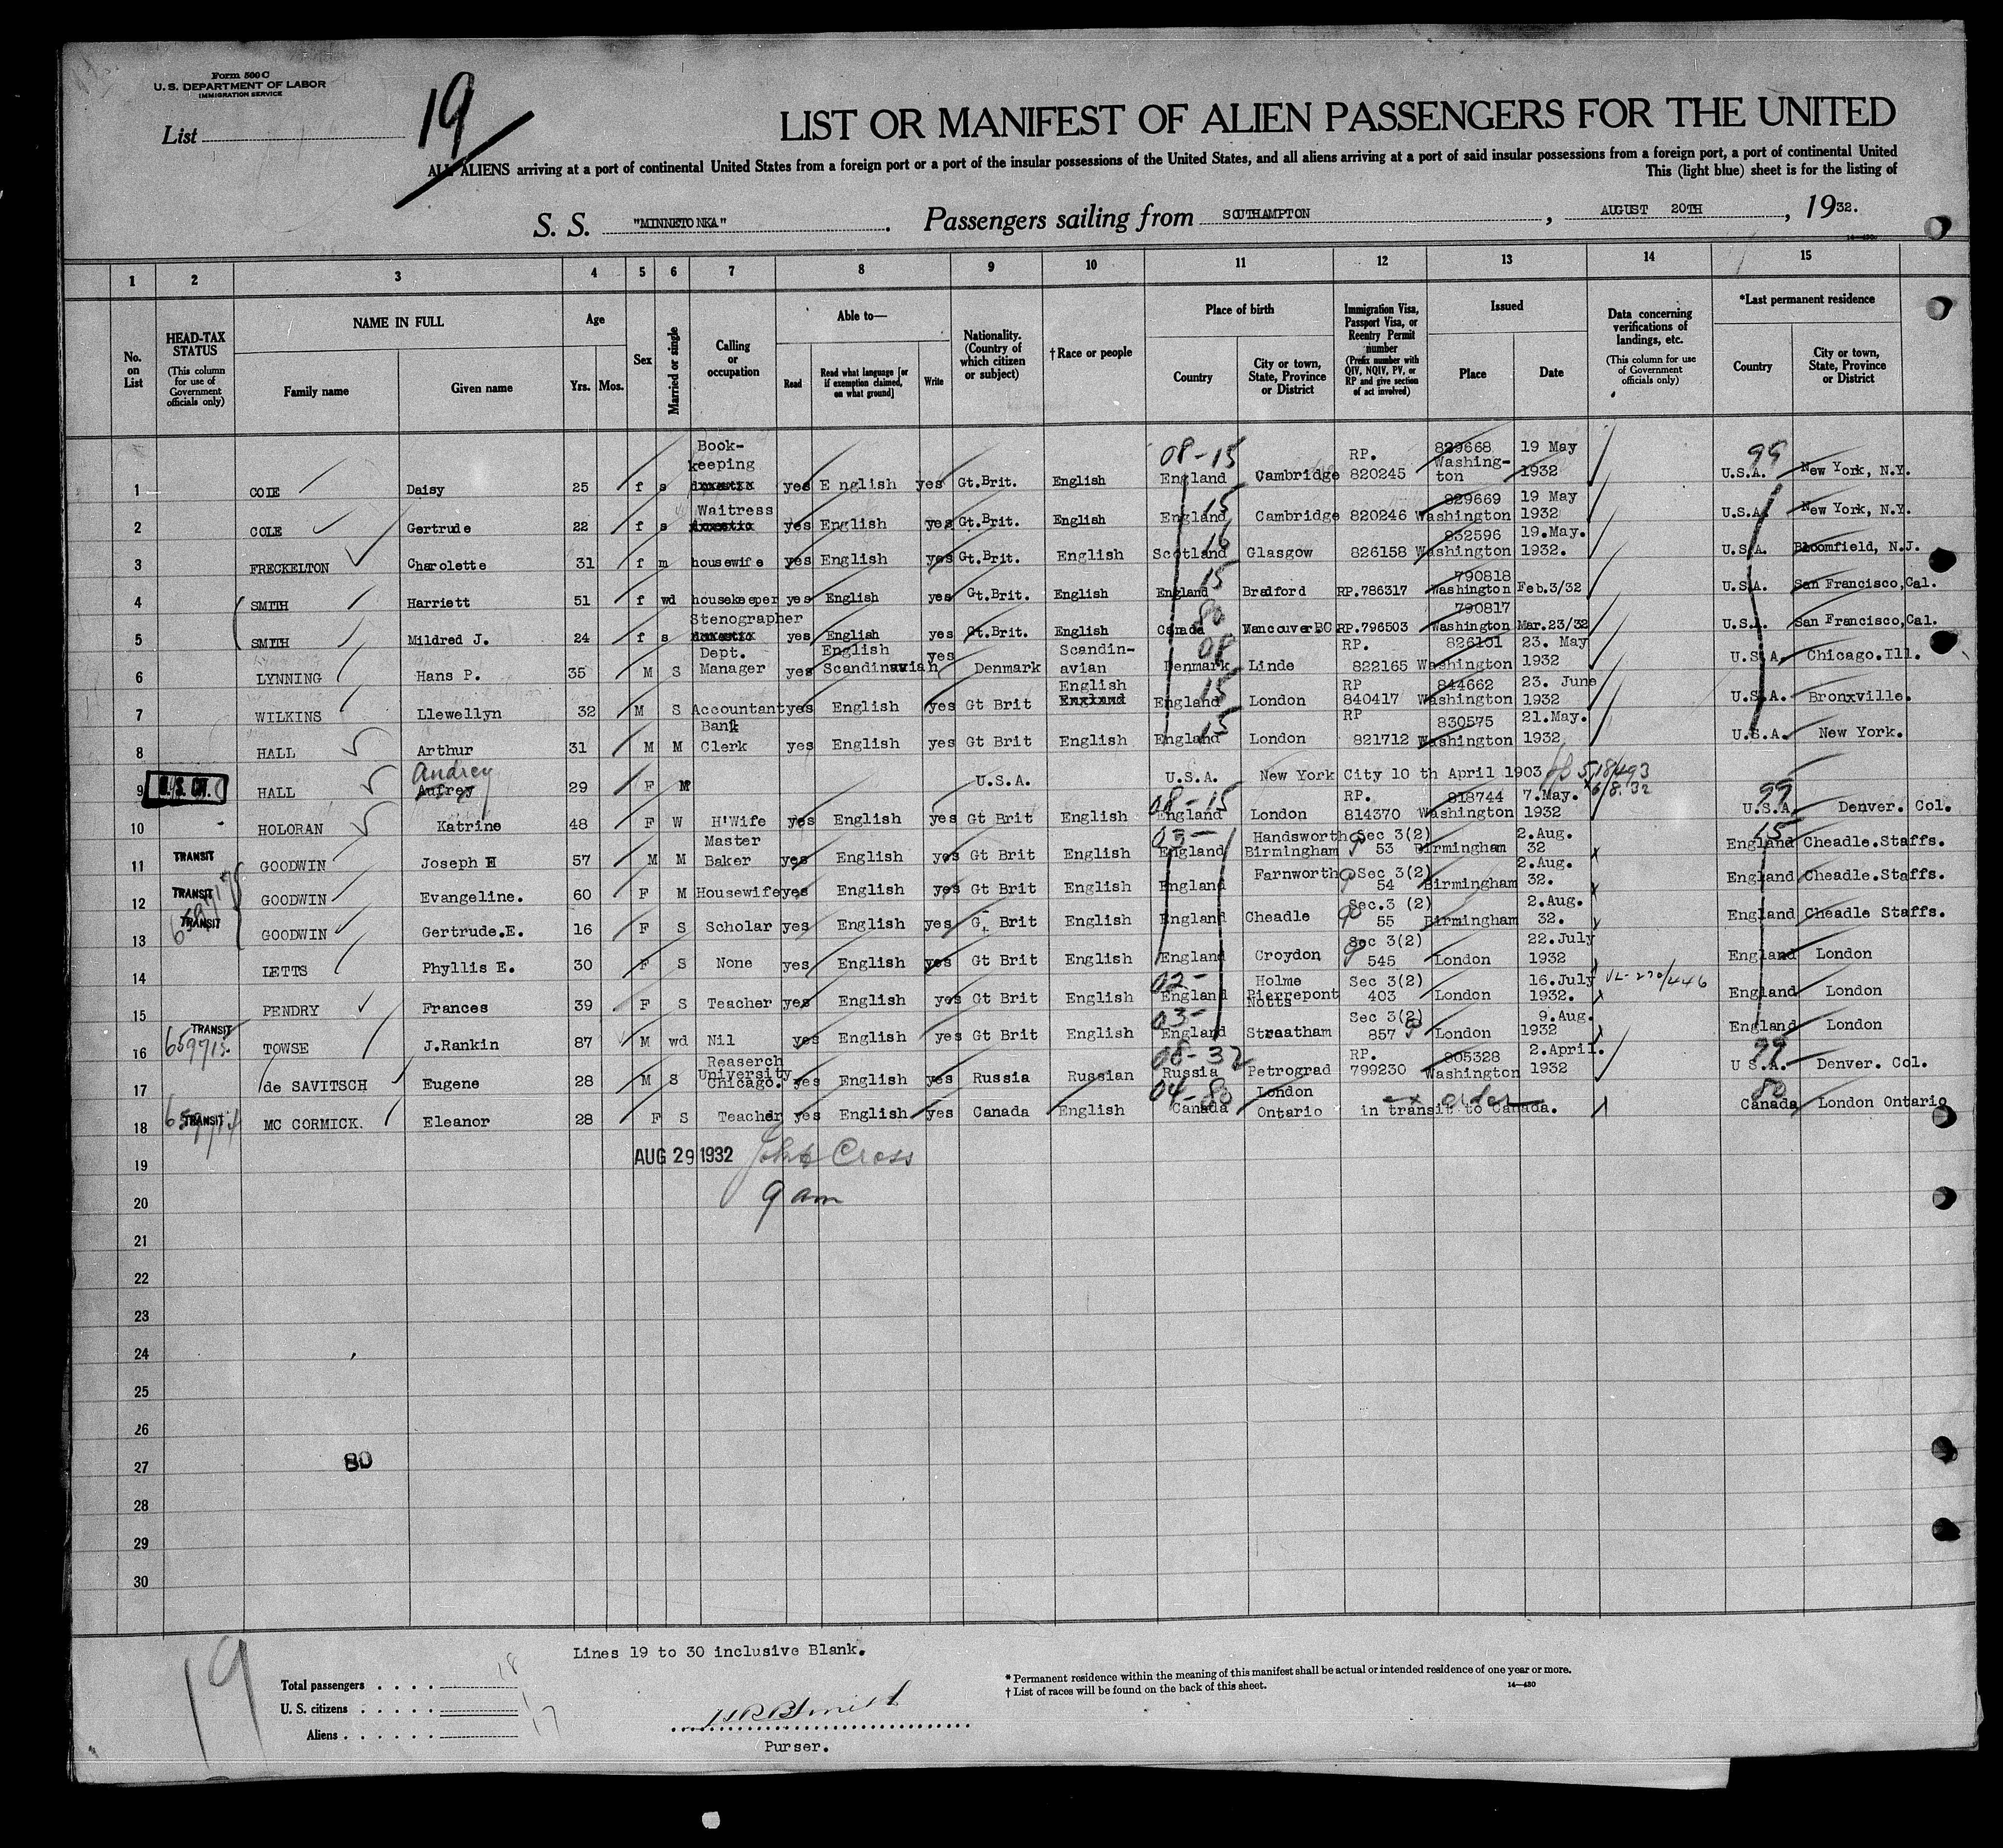 Form 500 C
U. S. DEPARTMENT OF LABOR
IMMIGRATION SERVICE
List
19
LIST OR MANIFEST OF ALIEN PASSENGERS FOR THE UNITED
ALL ALIENS arriving at a port of continental United States from a foreign port or a port of the insular possessions of the United States, and all aliens arriving at a port of said insular possessions from a foreign port, a port of continental United
This (light blue) sheet is for the listing of
S. S. "MINNETONKA". Passengers sailing from SOUTHAMPTON, AUGUST 20TH, 1932.
14—430
1 2 3 4 5 6 7 8 9 10 11 12 13 14 15
No. on List
HEAD-TAX STATUS (This column for use of Government officials only)
NAME IN FULL Family name Given name
Age Yrs. Mos.
Sex
Married or single
Calling or occupation
Able to— Read Read what language [or if exemption claimed, on what ground] Write
Nationality. (Country of which citizen or subject)
†Race or people
Place of birth Country City or town, State, Province or District
Immigration Visa, Passport Visa, or Reentry Permit number (Prefix number with QIV, NQIV, PV, or RP and give section of act involved)
Issued Place Date
Data concerning verifications of landings, etc. (This column for use of Government officials only)
*Last permanent residence Country City or town, State, Province or District
1 COLE Daisy 25 f s Book-keeping yes English yes Gt.Brit. English 08-15 England Cambridge RP. 820245 829668 Washington 19 May 1932 99 U.S.A. New York, N.Y.
2 COLE Gertrude 22 f s Waitress yes English yes Gt.Brit. English 15 England Cambridge 820246 829669 Washington 19 May 1932 U.S.A. New York, N.Y.
3 FRECKELTON Charolette 31 f m housewife yes English yes Gt.Brit. English 16 Scotland Glasgow 826158 832596 Washington 19.May. 1932. U.S.A. Bloomfield, N.J.
4 SMITH Harriett 51 f wd housekeeper yes English yes Gt.Brit. English 15 England Bradford RP.786317 790818 Washington Feb.3/32 U.S.A. San Francisco,Cal.
5 SMITH Mildred J. 24 f s Stenographer yes English yes Gt.Brit. English 80 Canada VancouverBC RP.796503 790817 Washington Mar.23/32 U.S.A. San Francisco,Cal.
6 LYNNING Hans P. 35 M S Dept. Manager yes English Scandinavian yes Denmark Scandin-avian 08 Denmark Linde RP. 822165 826101 Washington 23. May 1932 U.S.A. Chicago.Ill.
7 WILKINS Llewellyn 32 M S Accountant yes English yes Gt Brit English England 15 England London RP 840417 844662 Washington 23. June 1932 U.S.A. Bronxville.
8 HALL Arthur 31 M M Bank Clerk yes English yes Gt Brit English 15 England London RP 821712 830575 Washington 21.May. 1932 U.S.A. New York.
9 U.S. CIT. HALL Audrey Aufrey 29 F M U.S.A. U.S.A. New York City 10 th April 1903
10 HOLORAN Katrine 48 F W H'Wife yes English yes Gt Brit English 08-15 England London RP. 814370 818744 Washington 7.May. 1932 99 U.S.A. Denver. Col.
11 TRANSIT GOODWIN Joseph H 57 M M Master Baker yes English yes Gt Brit English 03- England Handsworth Birmingham Sec 3(2) 53 Birmingham 2.Aug. 32 15 England Cheadle.Staffs.
12 TRANSIT GOODWIN Evangeline. 60 F M Housewife yes English yes Gt Brit English England Farnworth Sec 3(2) 54 Birmingham 2.Aug. 32. England Cheadle.Staffs.
13 TRANSIT GOODWIN Gertrude.E. 16 F S Scholar yes English yes G. Brit English England Cheadle Sec.3 (2) 55 Birmingham 2.Aug. 32. England Cheadle Staffs.
14 LETTS Phyllis E. 30 F S None yes English yes Gt Brit English England Croydon Sec 3(2) 545 London 22.July 1932 England London
15 PENDRY Frances 39 F S Teacher yes English yes Gt Brit English 02- England Holme Pierrepont Notts Sec 3(2) 403 London 16.July 1932. VL-270/446 England London
16 TRANSIT 659715 TOWSE J.Rankin 87 M wd Nil yes English yes Gt Brit English 03- England Streatham Sec 3(2) 857 London 9.Aug. 1932 England London
17 de SAVITSCH Eugene 28 M S Reaserch University Chicago. yes English yes Russia Russian 08-32 Russia Petrograd RP. 799230 805328 Washington 2.April. 1932 99 U S.A. Denver. Col.
18 TRANSIT 659714 MC CORMICK. Eleanor 28 F S Teacher yes English yes Canada English 04-80 Canada London Ontario in transit to Canada. 80 Canada London Ontario
19 AUG 29 1932 Cross
20 9 am
21
22
23
24
25
26
27 80
28
29
30
Lines 19 to 30 inclusive Blank.
19
Total passengers . . . . 18
U. S. citizens . . . . . 1
Aliens . . . . . . 17
Purser.
* Permanent residence within the meaning of this manifest shall be actual or intended residence of one year or more.
† List of races will be found on the back of this sheet.
14—430